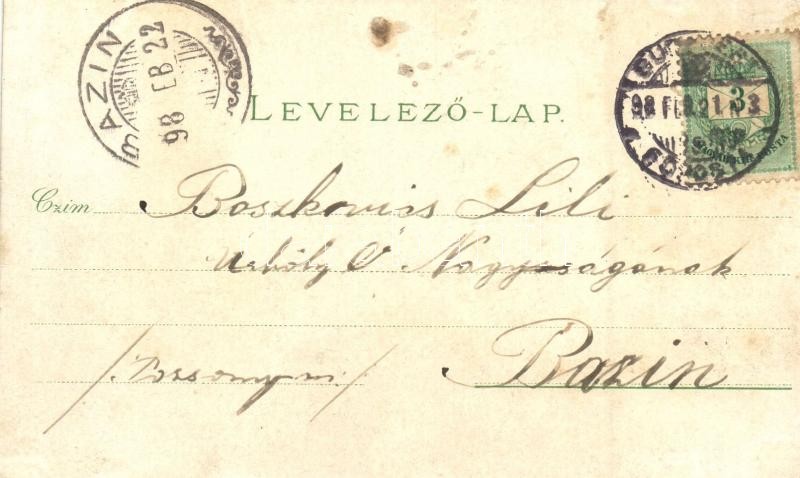 BAZIN
98 FEB 22
LEVELEZŐ-LAP.
98 FEB 21
3
Czim Boszkovics Lili
Úrhölgy Ő Nagyságának
/Pozsony m./ Bazin